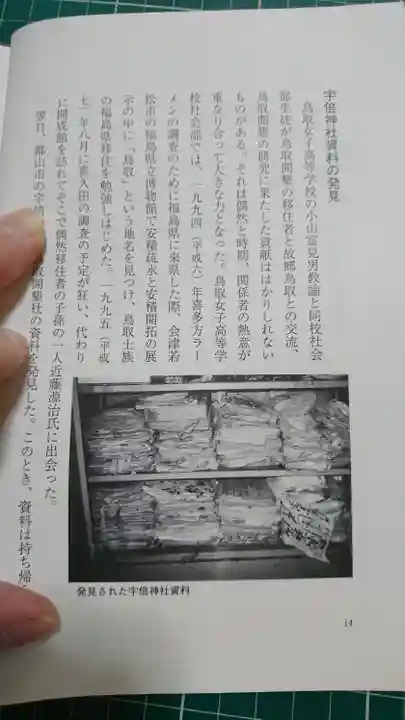 宇倍神社資料の発見
鳥取女子高等学校の小山富見男教諭と同校社会
部生徒が鳥取開墾の移住者と故郷鳥取との交流、
鳥取開墾の研究に果たした貢献ははかりしれない
ものがある。それは偶然と時期、関係者の熱意が
重なり合って大きな力となった。鳥取女子高等学
校社会部では、一九九四(平成六)年喜多方ラー
メンの調査のために福島県に来県した際、会津若
松市の福島県立博物館で安積疏水と安積開拓の展
示の中に「鳥取」という地名を見つけ、鳥取士族
の福島県移住を勉強しはじめた。一九九五(平成
七)年八月に喜久田の調査の予定が狂い、代わり
に開成館を訪れてそこで偶然移住者の子孫の一人近藤源治氏に出会った。
翌日、郡山市の宇倍
取開墾社の資料を発見した。このとき、資料は持ち帰
発見された宇倍神社資料
14